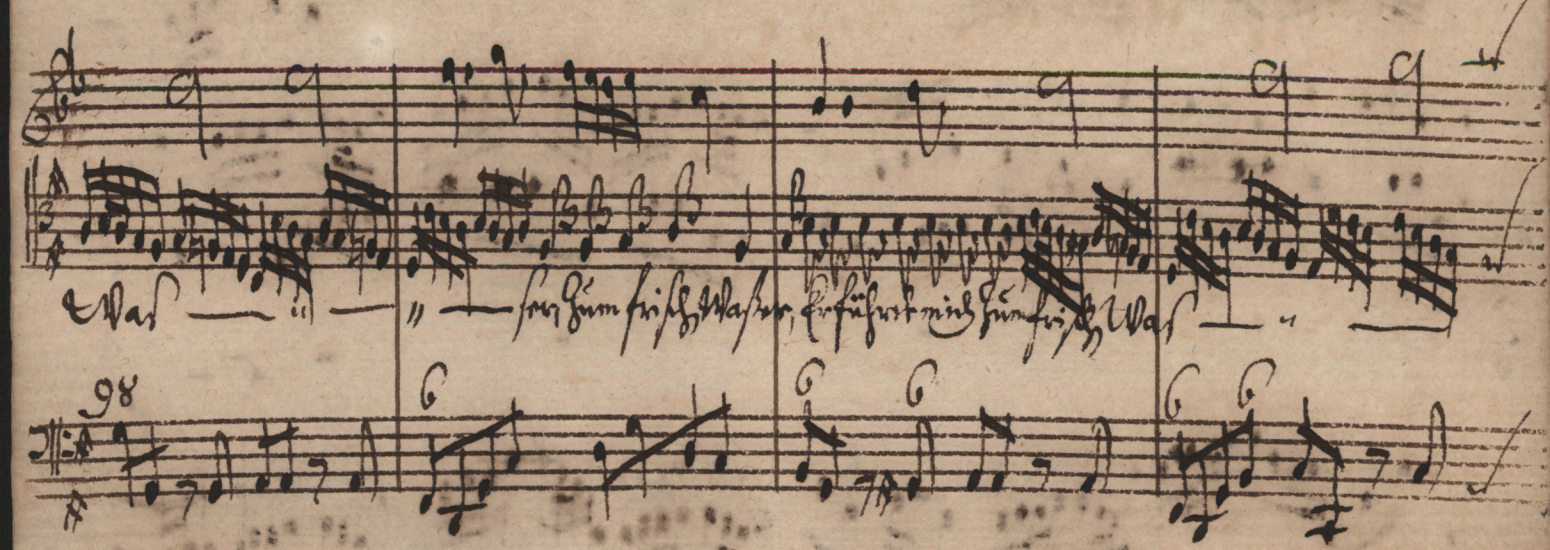 Was — " — " — ser, zum frisch Wasser, Er führet mich zum frisch Was — " —
98 6 6 6 6 6